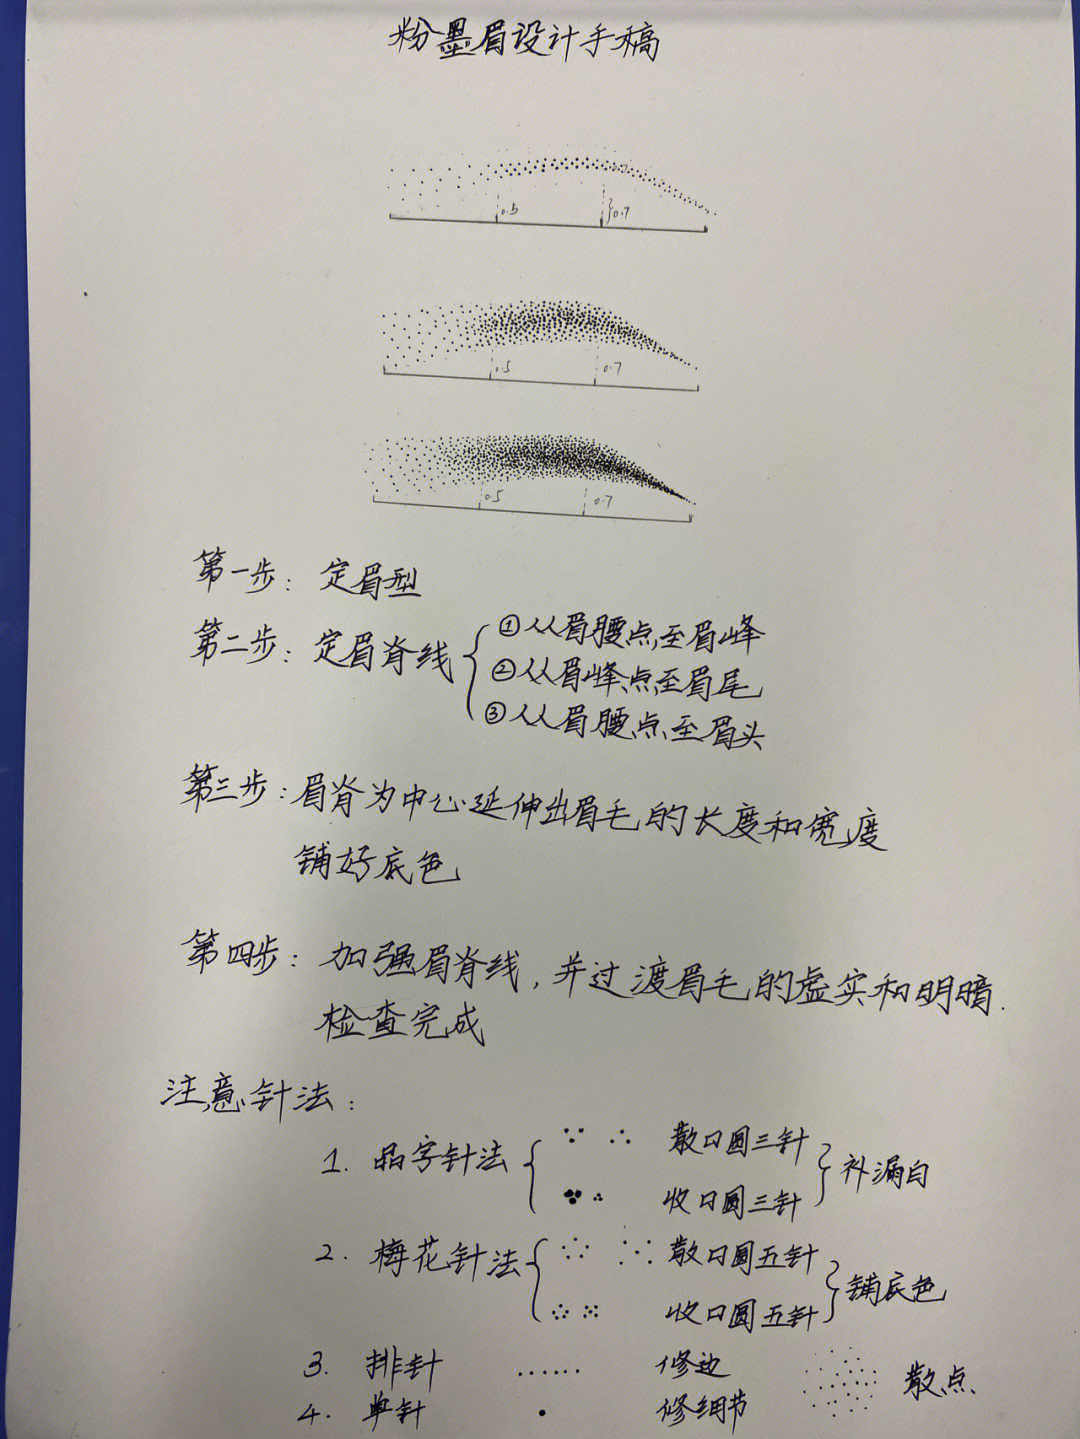 粉墨眉设计手稿
0.5 0.7
0.5 0.7
0.5 0.7
第一步：定眉型
第二步：定眉脊线
①从眉腰点至眉峰
②从眉峰点至眉尾
③从眉腰点至眉头
第三步：眉脊为中心延伸出眉毛的长度和宽度
铺好底色
第四步：加强眉脊线，并过渡眉毛的虚实和明暗.
检查完成
注意针法：
1. 品字针法 散口圆三针 补漏白
收口圆三针
2. 梅花针法 散口圆五针 铺底色
收口圆五针
3. 排针 ...... 修边 散点
4. 单针 • 修细节